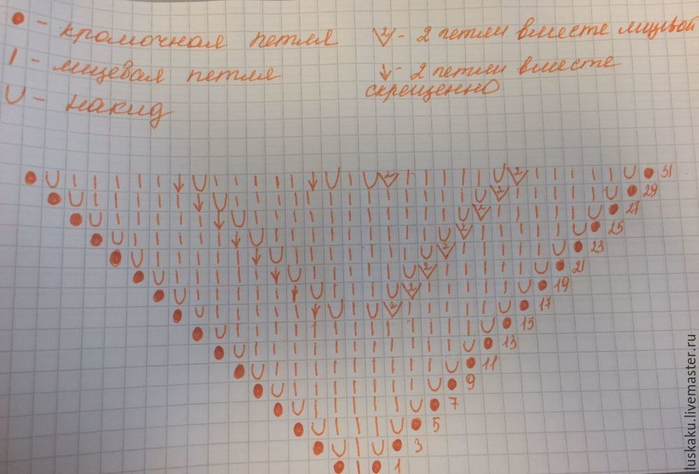 ● - кромочная петля
2 - 2 петли вместе лицевой
| - лицевая петля
↓ - 2 петли вместе
скрещенно
U - накид
31
29
27
25
23
21
19
17
15
13
11
9
7
5
3
1
uskaku.livemaster.ru